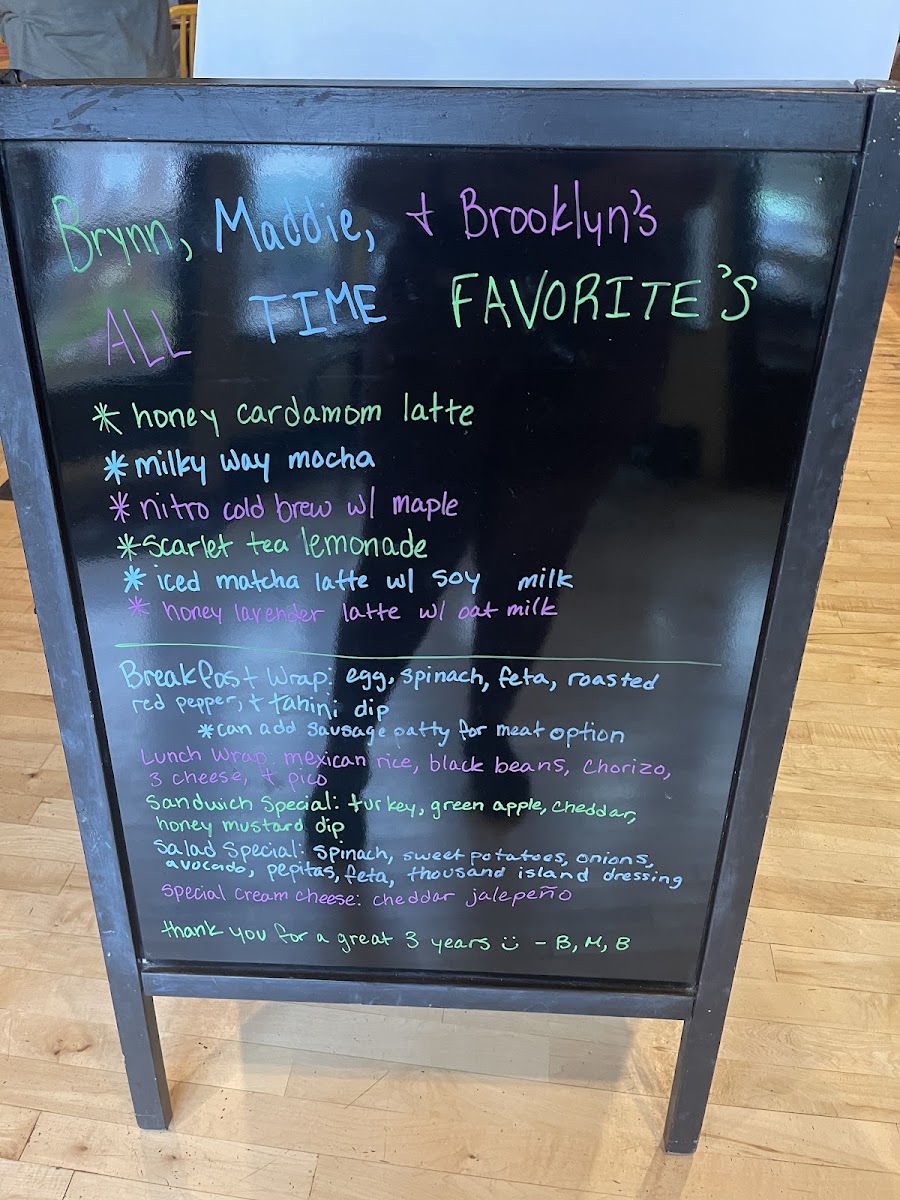 Brynn, Maddie, + Brooklyn's
ALL TIME FAVORITE'S
* honey cardamom latte
* milky way mocha
* nitro cold brew w/ maple
* scarlet tea lemonade
* iced matcha latte w/ soy milk
* honey lavender latte w/ oat milk
Breakfast Wrap: egg, spinach, feta, roasted
red pepper, + tahini dip
* can add sausage patty for meat option
Lunch Wrap: mexican rice, black beans, chorizo,
3 cheese, + pico
Sandwich Special: turkey, green apple, cheddar,
honey mustard dip
Salad Special: spinach, sweet potatoes, onions,
avocado, pepitas, feta, thousand island dressing
Special Cream Cheese: cheddar jalepeño
thank you for a great 3 years :) - B, M, B